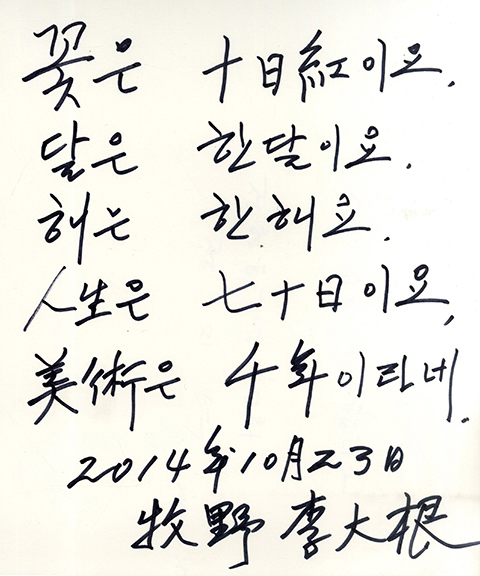 꽃은 十日紅이요.
달은 한달이요.
해는 한해요.
人生은 七十日이요,
美術은 千年이라네.
2014年10月23日
牧野 李大根